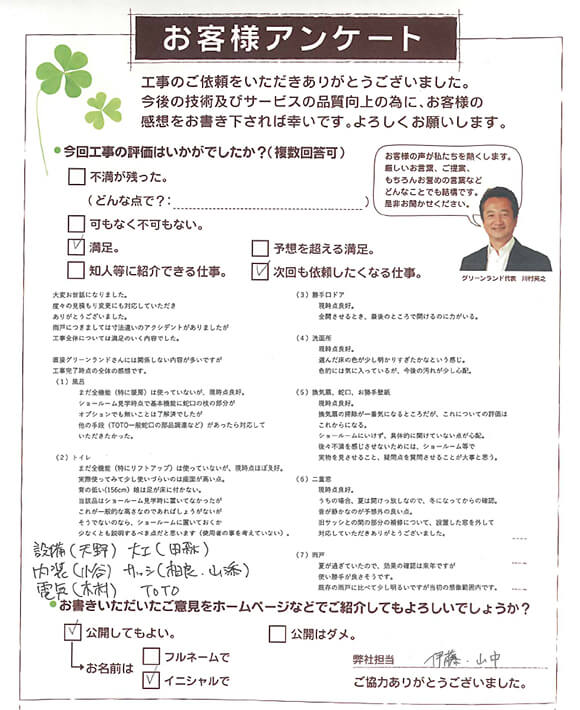 お客様アンケート
工事のご依頼をいただきありがとうございました。
今後の技術及びサービスの品質向上の為に、お客様の
感想をお書き下されば幸いです。よろしくお願いします。
今回工事の評価はいかがでしたか？（複数回答可）
不満が残った。
（どんな点で？：　　）
可もなく不可もない。
満足。
予想を超える満足。
知人等に紹介できる仕事。
次回も依頼したくなる仕事。
お客様の声が私たちを熱くします。
厳しいお言葉、ご提案、
もちろんお誉めの言葉など
どんなことでも結構です。
是非お聞かせください。
グリーンランド代表　川村晃之
大変お世話になりました。
度々の見積もり変更にも対応していただき
ありがとうございました。
雨戸につきましては寸法違いのアクシデントがありましたが
工事全体については満足のいく内容でした。
直接グリーンランドさんには関係しない内容が多いですが
工事完了時点の全体の感想です。
（１）風呂
まだ全機能（特に暖房）は使っていないが、現時点良好。
ショールーム見学時点で基本機能に蛇口の枝の部分が
オプションでも無いことは了解済でしたが
他の手段（TOTO一般蛇口の部品調達など）があったら対応して
いただきたかった。
（２）トイレ
まだ全機能（特にリフトアップ）は使っていないが、現時点ほぼ良好。
実際使ってみて少し使いづらいのは座面が高い点。
背の低い(156cm）娘は足が床に付かない。
当該品はショールーム見学時に置いてなかったが
これが一般的な高さなのであればしょうがないが
そうでないのなら、ショールームに置いておくか
少なくとも説明するべき点だと思います（使用者の事を考えていない）。
（３）勝手口ドア
現時点良好。
全開させるとき、最後のところで開けるのに力がいる。
（４）洗面所
現時点良好。
選んだ床の色が少し明かりすぎたかなという感じ。
色的には気に入っているが、今後の汚れが少し心配。
（５）換気扇、蛇口、お勝手壁紙
現時点良好。
換気扇の掃除が一番気になるところだが、これについての評価は
これからになる。
ショールームにいけず、具体的に聞けていない点が心配。
後々不満を感じさせないためには、ショールーム等で
実物を見させること、疑問点を質問させることが大事と思う。
（６）二重窓
現時点良好。
うちの場合、夏は開けっ放しなので、冬になってからの確認。
音が静かなのが予想外の良い点。
旧サッシとの間の部分の補修について、設置した窓を外して
対応していただきありがとうございました。
（７）雨戸
夏が過ぎていたので、効果の確認は来年ですが
使い勝手が良さそうです。
既存の雨戸に比べて少し明るいですが当初の想像範囲内です。
設備（天野）　大工（田　）
内装（小谷）　サッシ（相良・山添）
電気（木村）　TOTO
お書きいただいたご意見をホームページなどでご紹介してもよろしいでしょうか？
公開してもよい。
公開はダメ。
お名前は
フルネームで
イニシャルで
弊社担当　伊藤・山中
ご協力ありがとうございました。